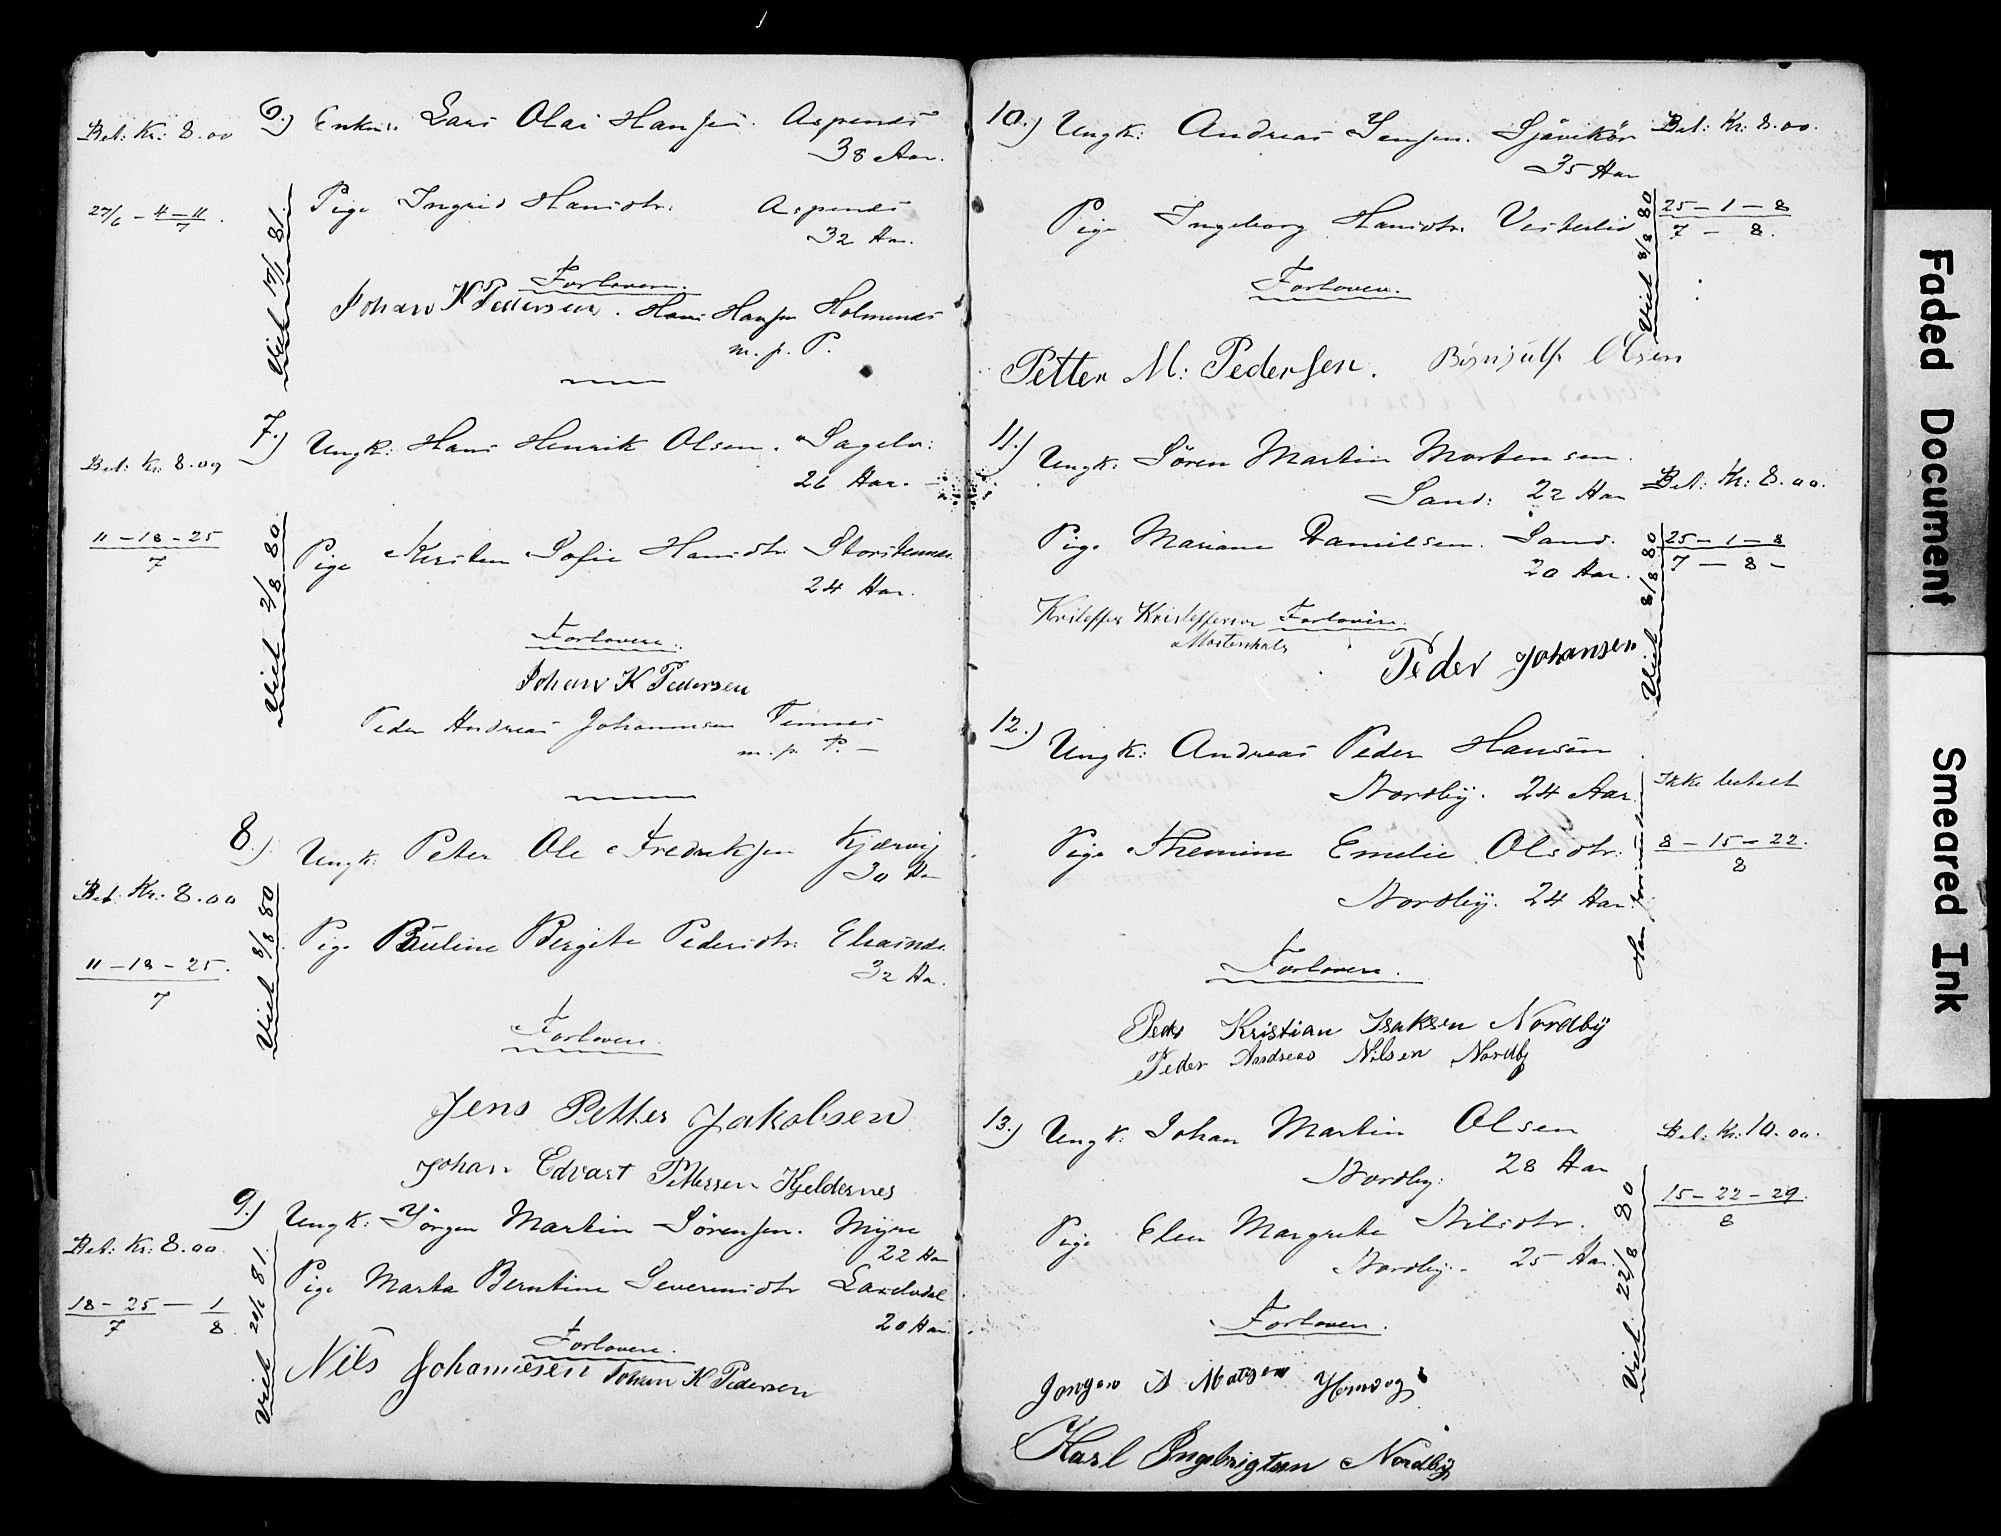 6.) Enkm. Lars Olai Hansen. Aspenes
38 Aar.
Bet: Kr: 8.00
Pige Ingrid Hansdtr. Aspenes
32 Aar.
27/6 – 4 – 11
7
Viet 17/1 81.
Forlovere.
Johan K Pedersen. Hans Hansen Holmenes
m. p. P.
7.) Ungk: Hans Henrik Olsen. Sagelv:
26 Aar.
Bet: Kr: 8.00
Pige Kirsten Sofie Hansdtr. Storstennes
24 Aar.
11 – 18 – 25
7
Viet 2/8 80.
Forlovere.
Johan K Pedersen
Peder Andreas Johannesen Tennes
m. p. P. –
8.) Ungk: Peter Ole Fredriksen Kjærvig
30 Aar
Bet. Kr. 8.00
Pige Pauline Bergite Pedersdtr.
32 Aar.
11 – 18 – 25.
7
Viet 8/8 80
Forlovere.
Jens Petter Jakobsen
Johan Edvart Pettersen Kjeldernes
9.) Ungk: Jörgen Martin Sörensen. Myre
22 Aar
Bet: Kr: 8.00.
Pige Marta Berntine Severinsdtr
20 Aar
18 – 25 – 1
7 8
Viet 20/6 81.
Forlovere.
Nils Johannesen Johan K Pedersen
10.) Ungk: Andreas Jensen. Sjåvikör
35 Aar
Bet: Kr: 8.00.
Pige Ingeborg Hansdtr. Vesterlid
25 – 1 – 8
7 – 8.
Viet 8/8 80
Forlovere.
Petter M: Pedersen. Olsen
11.) Ungk: Sören Martin Mortensen.
Sand: 22 Aar
Bet: Kr: 8.00.
Pige Mariane Danielsen. Sand.
20 Aar.
25 – 1 – 8
7 – 8 –
Viet 8/8 80
Kristoffer Kristoffersen Forlovere.
Mortenhals
Peder Johansen
12.) Ungk: Andreas Peder Hansen
Nordby. 24 Aar.
Ikke betalt
Pige Themine Emelie Olsdtr:
Nordby. 24 Aar.
8 – 15 – 22.
8
Forlovere.
Peder Kristian Isaksen Nordby
Peder Andreas Nilsen Nordby
13.) Ungk: Johan Martin Olsen
Nordby. 28 Aar
Bet: Kr: 10.00.
Pige Elen Margrete Nilsdtr.
Nordby. 25 Aar.
15 – 22 – 29.
8
Viet 22/8 80
Forlovere.
Jørgen A Matisen
Karl Ingebrigtsen Nordby
Faded Document
Smeared Ink